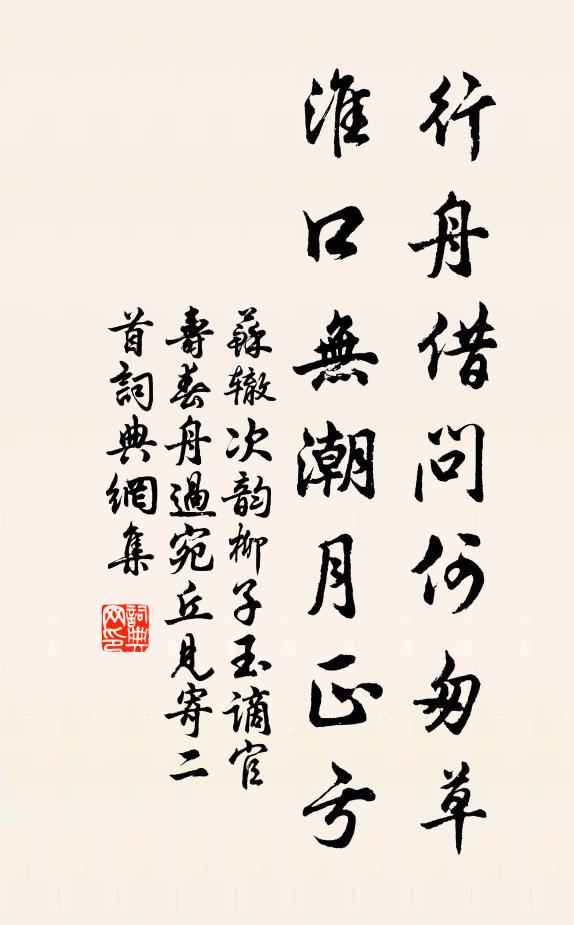 行舟借问何匆草
淮口無潮月正亏
蘇辙次韵柳子玉谪官
壽春舟過宛丘見寄二
首詞典網集
詞典网印